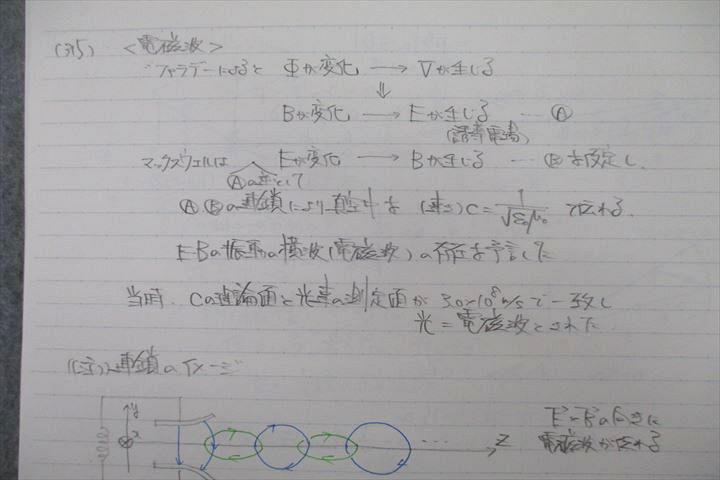 (315) <電磁波>
ファラデーによると Φが変化 → Vが生じる
⇓
Bが変化 → Eが生じる … Ⓐ
(誘導電場)
マックスウェルは Eが変化 → Bが生じる … Ⓑを仮定し、
Ⓐの逆として
ⒶⒷの連鎖により真空中を (速さ) C = 1/√ε₀μ₀ で伝わる.
E・Bの振動の横波(電磁波)の存在を予言した
当時. Cの理論値と光速の測定値が 3.0×10⁸ m/s で一致し
光 = 電磁波とされた
(注) 連鎖のイメージ
y
x
Z
E×Bの向きに
電磁波が伝わる